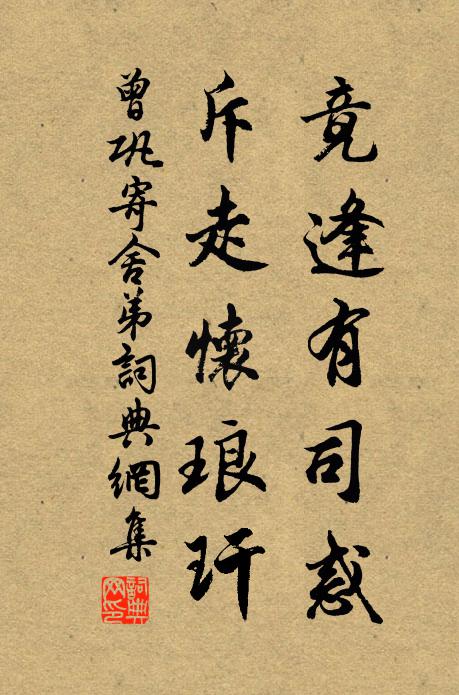 竟逢有司惑
斥走懷琅玕
曾巩寄舍弟詞典網集
詞典网印